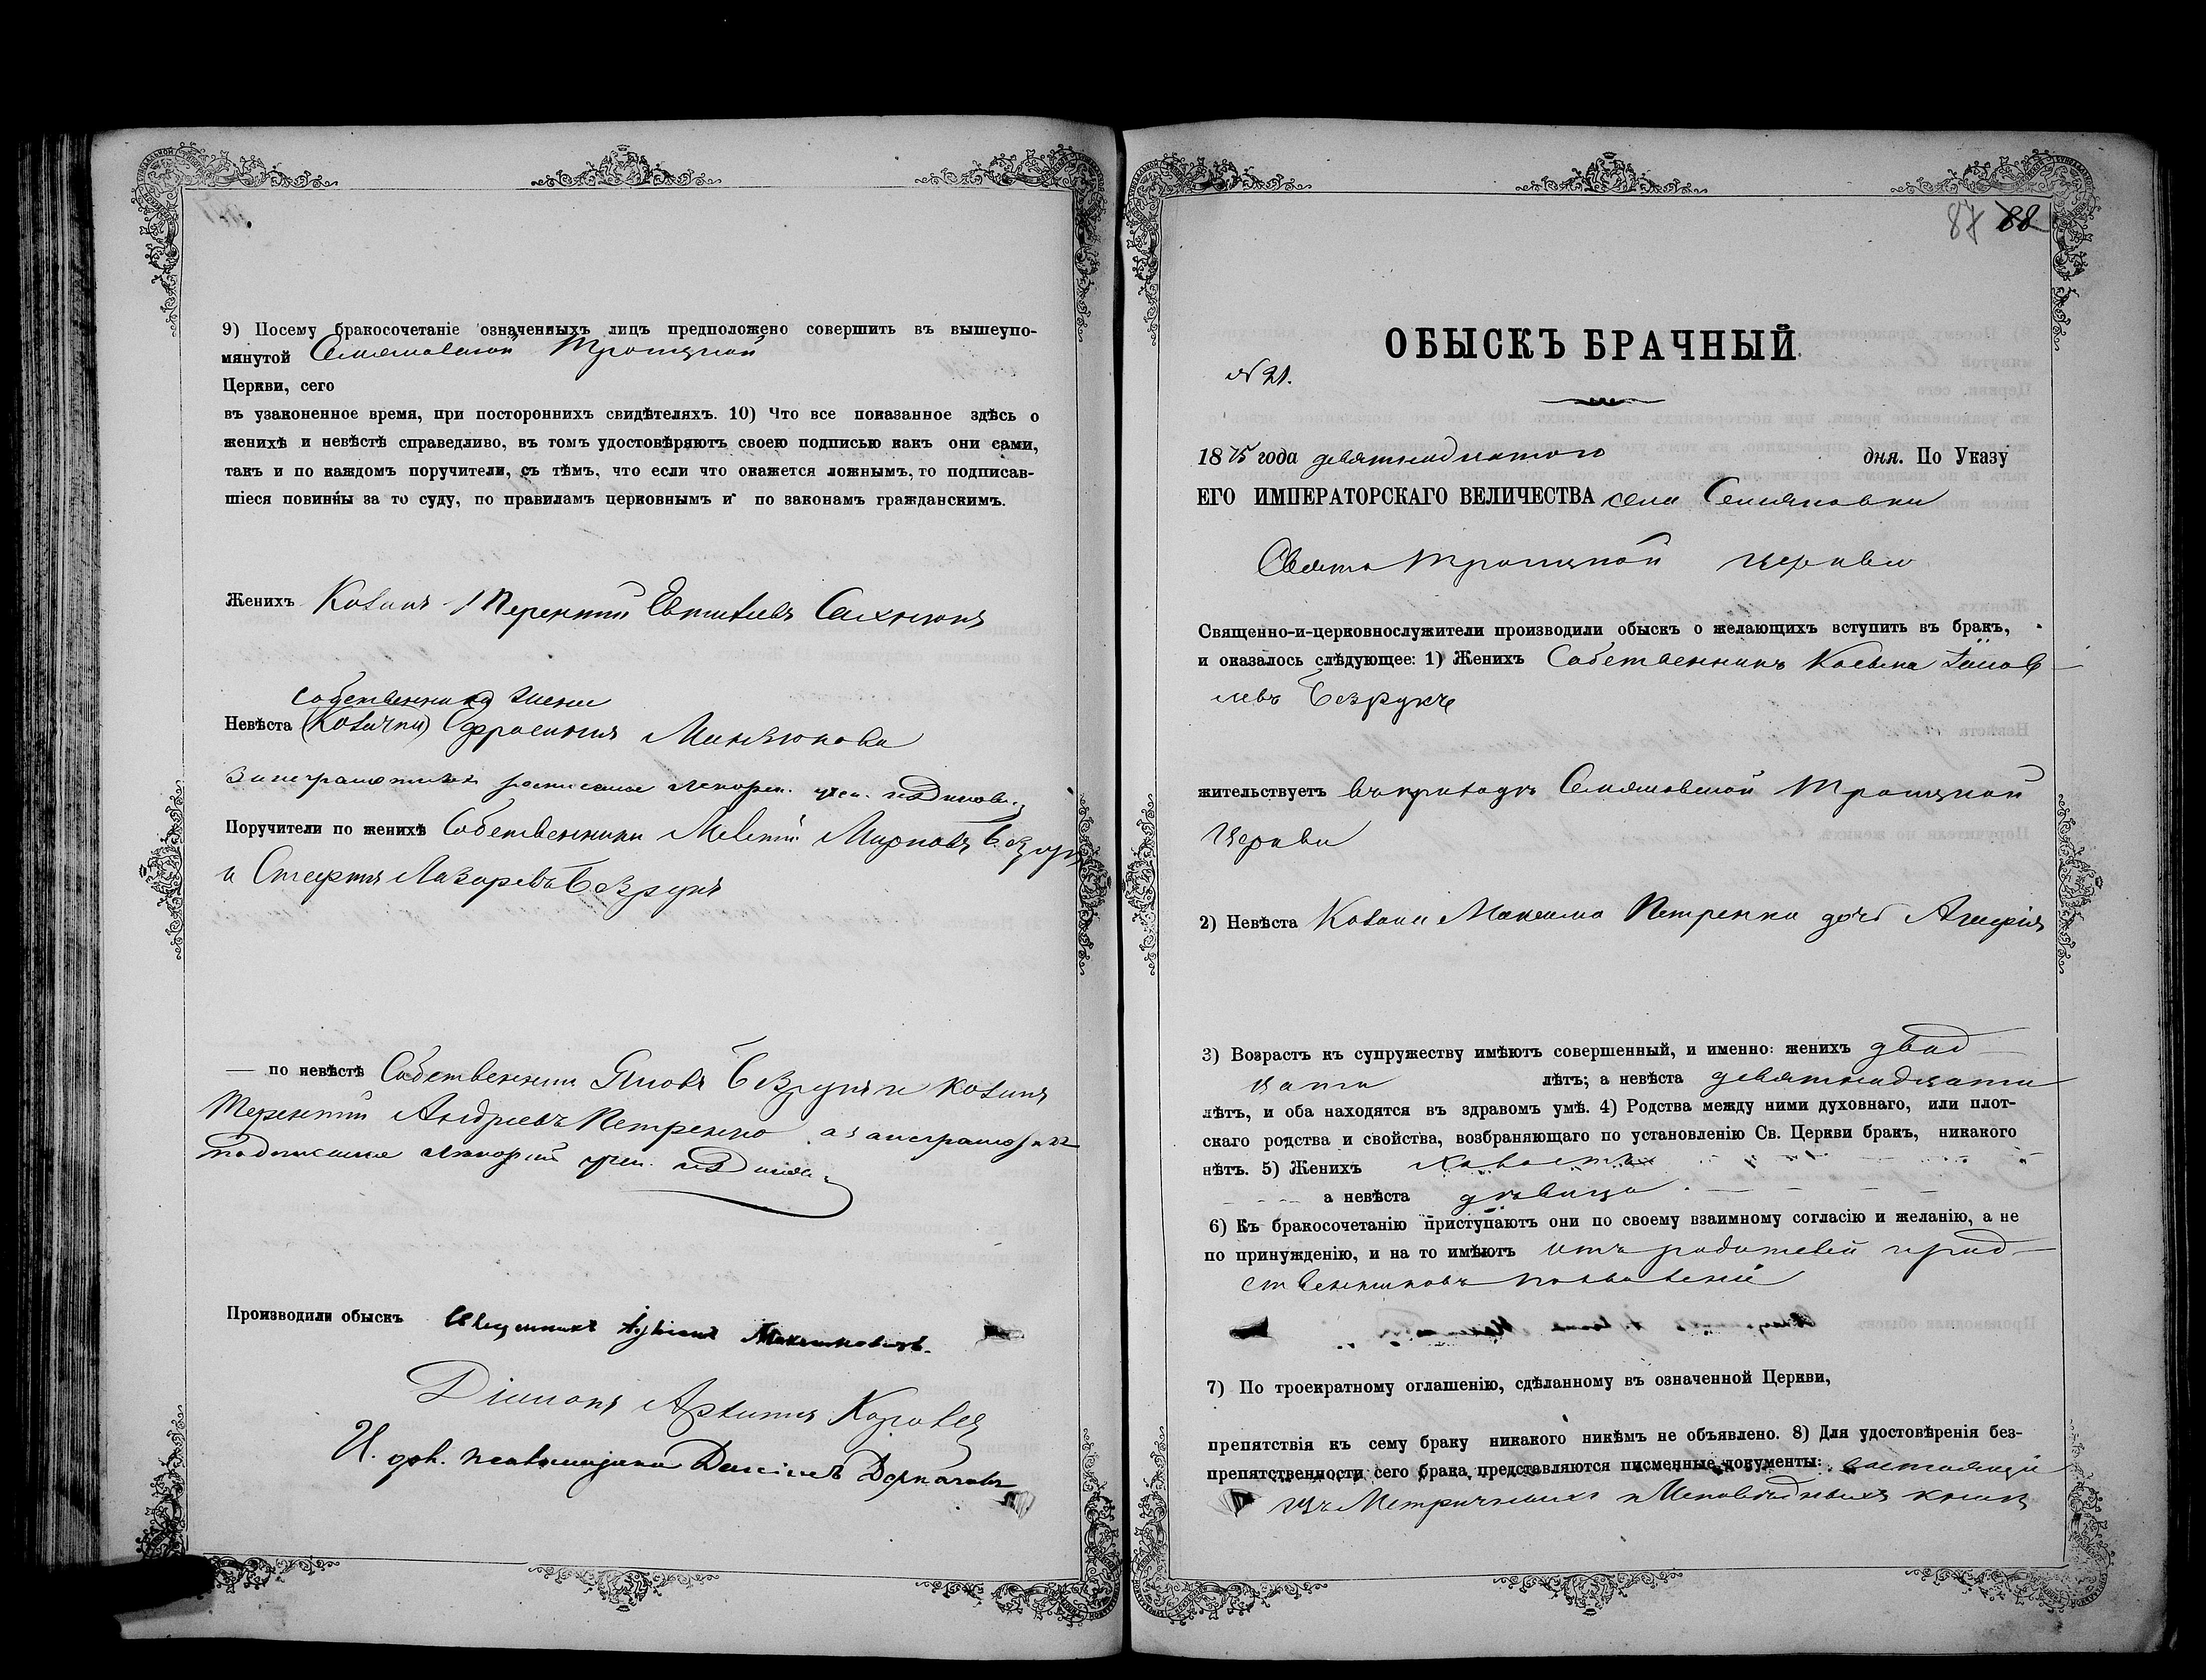 9) Посему бракосочетаніе означенныхъ лицъ предположено совершить въ вышеупо-
мянутой Семяновской Троицкой
Церкви, сего
въ узаконенное время, при постороннихъ свидѣтеляхъ. 10) Что все показанное здѣсь о
женихѣ и невѣстѣ справедливо, въ томъ удостовѣряютъ своею подписью какъ они сами,
такъ и по каждомъ поручители, съ тѣмъ, что если что окажется ложнымъ, то подписав-
шіеся повинны за то суду, по правиламъ церковнымъ и по законамъ гражданскимъ.
Женихъ Козакъ Терентій Евтихіевъ Сахнюкъ
собственника
Невѣста (Козачки) Ефросинія
Поручители по женихѣ Собственники Марковъ Безрукъ
и Лазаревъ Безрукъ
— по невѣстѣ Собственникъ Яковъ Безрукъ и козакъ
Терентій Андреевъ Петренко
Производили обыскъ Священникъ Максимовичъ.
Діаконъ Архипъ
И. дол. псаломщика
87 88
ОБЫСКЪ БРАЧНЫЙ
№ 21.
1875 года девятнадцатого дня. По Указу
ЕГО ИМПЕРАТОРСКАГО ВЕЛИЧЕСТВА села Семяновки
Свято Троицкой церкви
Священно-и-церковнослужители производили обыскъ о желающихъ вступить въ бракъ,
и оказалось слѣдующее: 1) Женихъ Собственникъ Косьма Яков-
левъ Безрукъ
жительствуетъ въ приходѣ Семяновской Троицкой
Церкви
2) Невѣста Козака Максима Петренка дочь
3) Возрастъ къ супружеству имѣютъ совершенный, и именно: женихъ двад-
цати лѣтъ; а невѣста девятнадцати
лѣтъ, и оба находятся въ здравомъ умѣ. 4) Родства между ними духовнаго, или плот-
скаго родства и свойства, возбраняющаго по установленію Св. Церкви бракъ, никакого
нѣтъ. 5) Женихъ холостъ
а невѣста дѣвица
6) Къ бракосочетанію приступаютъ они по своему взаимному согласію и желанію, а не
по принужденію, и на то имѣютъ отъ родителей и род-
ственниковъ позволеніе
7) По троекратному оглашенію, сдѣланному въ означенной Церкви,
препятствія къ сему браку никакого никѣмъ не объявлено. 8) Для удостовѣренія без-
препятственности сего брака представляются писменные документы: состоящіе
изъ Метрическихъ и Исповѣдныхъ книгъ